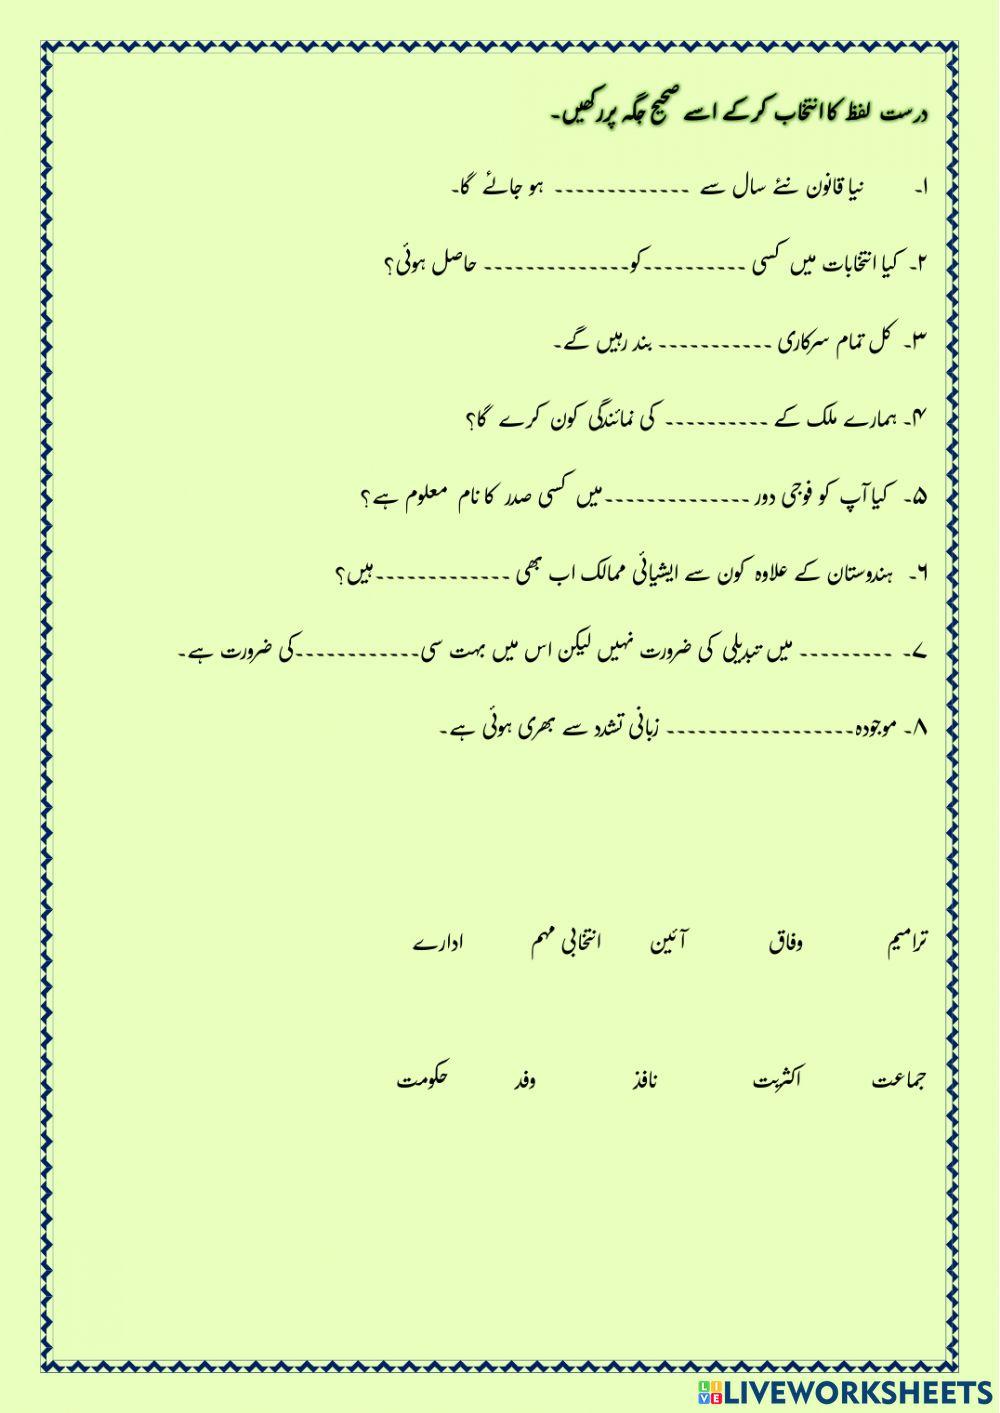 درست لفظ کا انتخاب کر کے اسے صحیح جگہ پر رکھیں۔
۱۔ نیا قانون نئے سال سے ------------- ہو جائے گا۔
۲۔ کیا انتخابات میں کسی ----------کو-------------- حاصل ہوئی؟
۳۔ کل تمام سرکاری ----------- بند رہیں گے۔
۴۔ ہمارے ملک کے ---------- کی نمائندگی کون کرے گا؟
۵۔ کیا آپ کو فوجی دور --------------میں کسی صدر کا نام معلوم ہے؟
۶۔ ہندوستان کے علاوہ کون سے ایشیائی ممالک اب بھی -------------ہیں؟
۷۔ --------- میں تبدیلی کی ضرورت نہیں لیکن اس میں بہت سی------------کی ضرورت ہے۔
۸۔ موجودہ------------------ زبانی تشدد سے بھری ہوئی ہے۔
ترامیم وفاق آئین انتخابی مہم ادارے
جماعت اکثریت نافذ وفد حکومت
LIVEWORKSHEETS